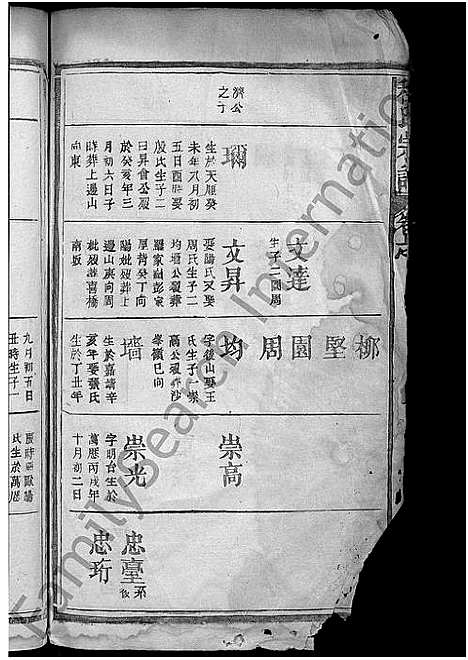 濟公
之丁
瑚
生於天順癸
未年八月初
五日酉時娶
殷氏生子二
曰昇文公歿
於癸亥年三
月初六日子
時葬上邊山
向東
文達
生子二園周
文昇
娶陽氏又娶
周氏生子二
均墻公歿葬
羅家㘭彭家
厚背癸丁向
陽妣歿葬上
邊山庚向周
妣歿葬喜橋
南坂
柳
堅
園
周
均
字後山娶王
氏生子一崇
高公歿葬沙
峯嶺巳向
墻
生於嘉靖辛
亥年娶張氏
生於丁丑年
九月初五日
丑時生子一
崇高
崇光
字明台生於
萬曆丙戌年
十月初二日
氏生於萬曆
忠臺
忠珩
FamilySearch International